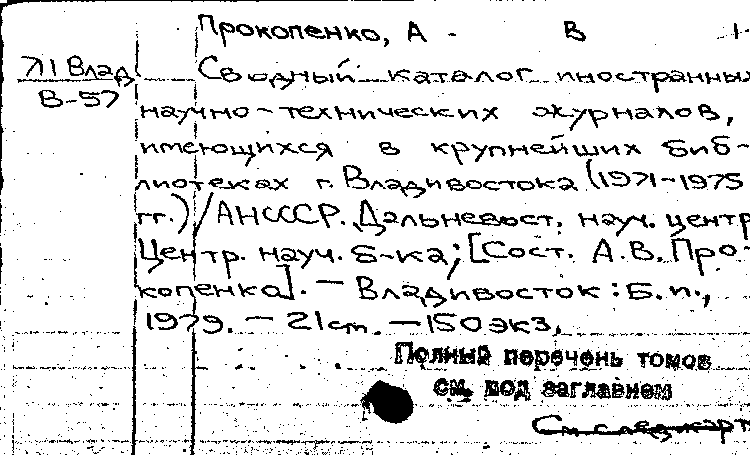 Прокопенко, А - В
711 Влад Сводный каталог иностранных
В-57 научно-технических журналов,
имеющихся в крупнейших биб-
лиотеках г. Владивостока (1971-1975
гг.) / АНСССР. Дальневост. науч. центр
Центр. науч. б-ка; [Сост. А.В. Про-
копенко]. — Владивосток: Б.и.,
1979. — 21 ст. — 150 экз.
Полный перечень томов
см. под заглавием
См след карт